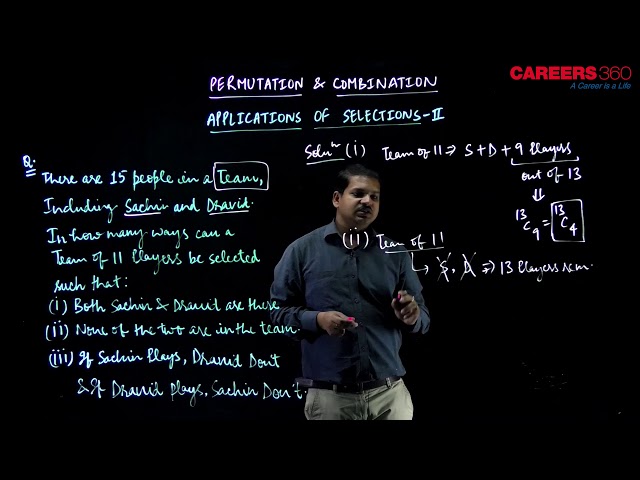 PERMUTATION & COMBINATION
APPLICATIONS OF SELECTIONS-II
CAREERS360
A Career is a Life
Q. There are 15 people in a Team,
Including Sachin and Dravid.
In how many ways can a
Team of 11 Players be selected
such that:
(i) Both Sachin & Dravid are there
(ii) None of the two are in the team.
(iii) If Sachin Plays, Dravid Don't
& If Dravid plays, Sachin Don't.
Soluⁿ (i) Team of 11 ⇒ S + D + 9 Players
out of 13
⇓
¹³C₉ = ¹³C₄
(ii) Team of 11
→ S, D ⇒ 13 Players rem.